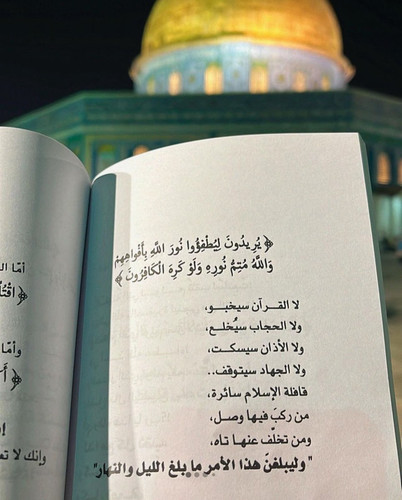 ﴿ يُرِيدُونَ لِيُطْفِؤُوا نُورَ اللَّهِ بِأَفْوَاهِهِمْ
وَاللَّهُ مُتِمُّ نُورِهِ وَلَوْ كَرِهَ الْكَافِرُونَ ﴾
لا القـرآن سيخبـو،
ولا الحجاب سيُخلـع،
ولا الأذان سيسكـت،
ولا الجهاد سيتوقف..
قافلة الإسلام سائرة،
من ركبَ فيها وصـل،
ومن تخلّف عنهـا تـاه،
"وليبلغنّ هذا الأمر ما بلغ الليل والنهار"
أمّا
وأمّا
وإنك لا